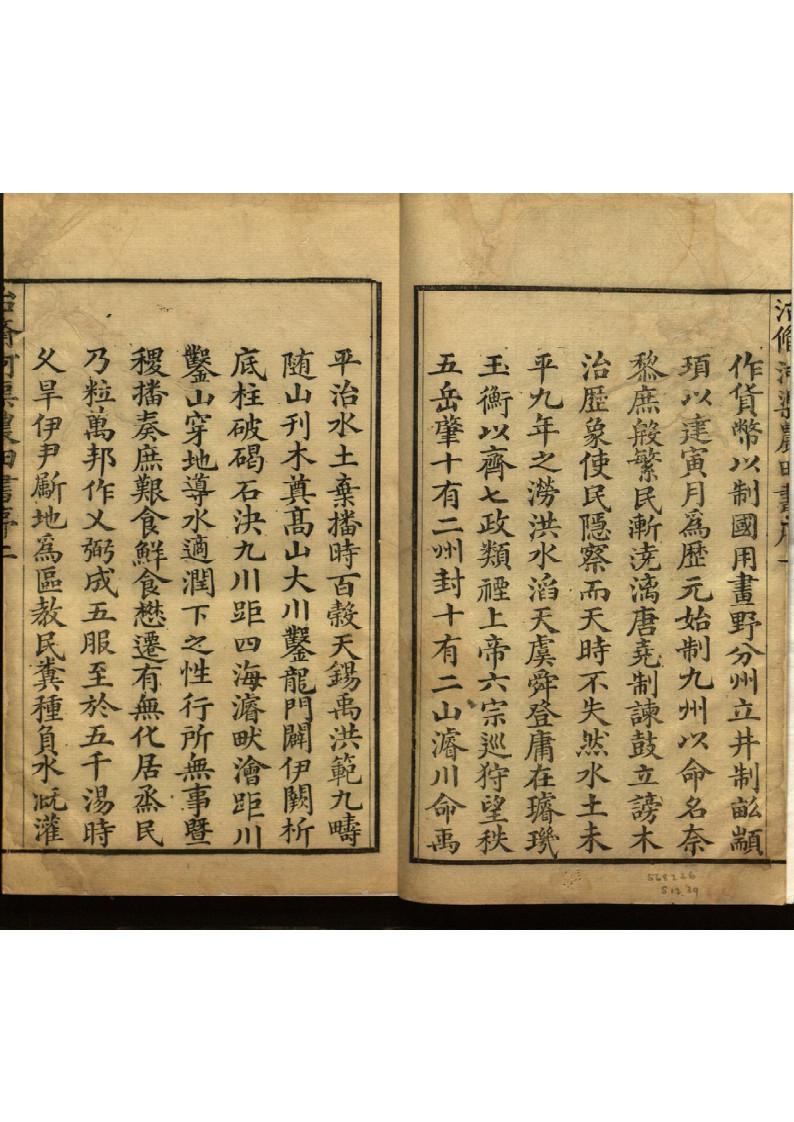 作貨幣以制國用畫野分州立井制畝顓
頊以建寅月爲歷元始制九州以命名奈
黎庶殷繁民漸澆漓唐堯制諫鼓立謗木
治歷象使民隱察而天時不失然水土未
平九年之澇洪水滔天虞舜登庸在璿璣
玉衡以齊七政類禋上帝六宗巡狩望秩
五岳肇十有二州封十有二山濬川命禹
平治水土棄播時百穀天錫禹洪範九疇
随山刊木奠髙山大川鑿龍門闢伊闕析
底柱破碣石決九川距四海濬畎澮距川
鑿山穿地導水適潤下之性行所無事暨
稷播奏庶艱食鮮食懋遷有無化居烝民
乃粒萬邦作乂弼成五服至於五千湯時
乂旱伊尹斸地爲區教民糞種負水漑灌
568226
5.12.39